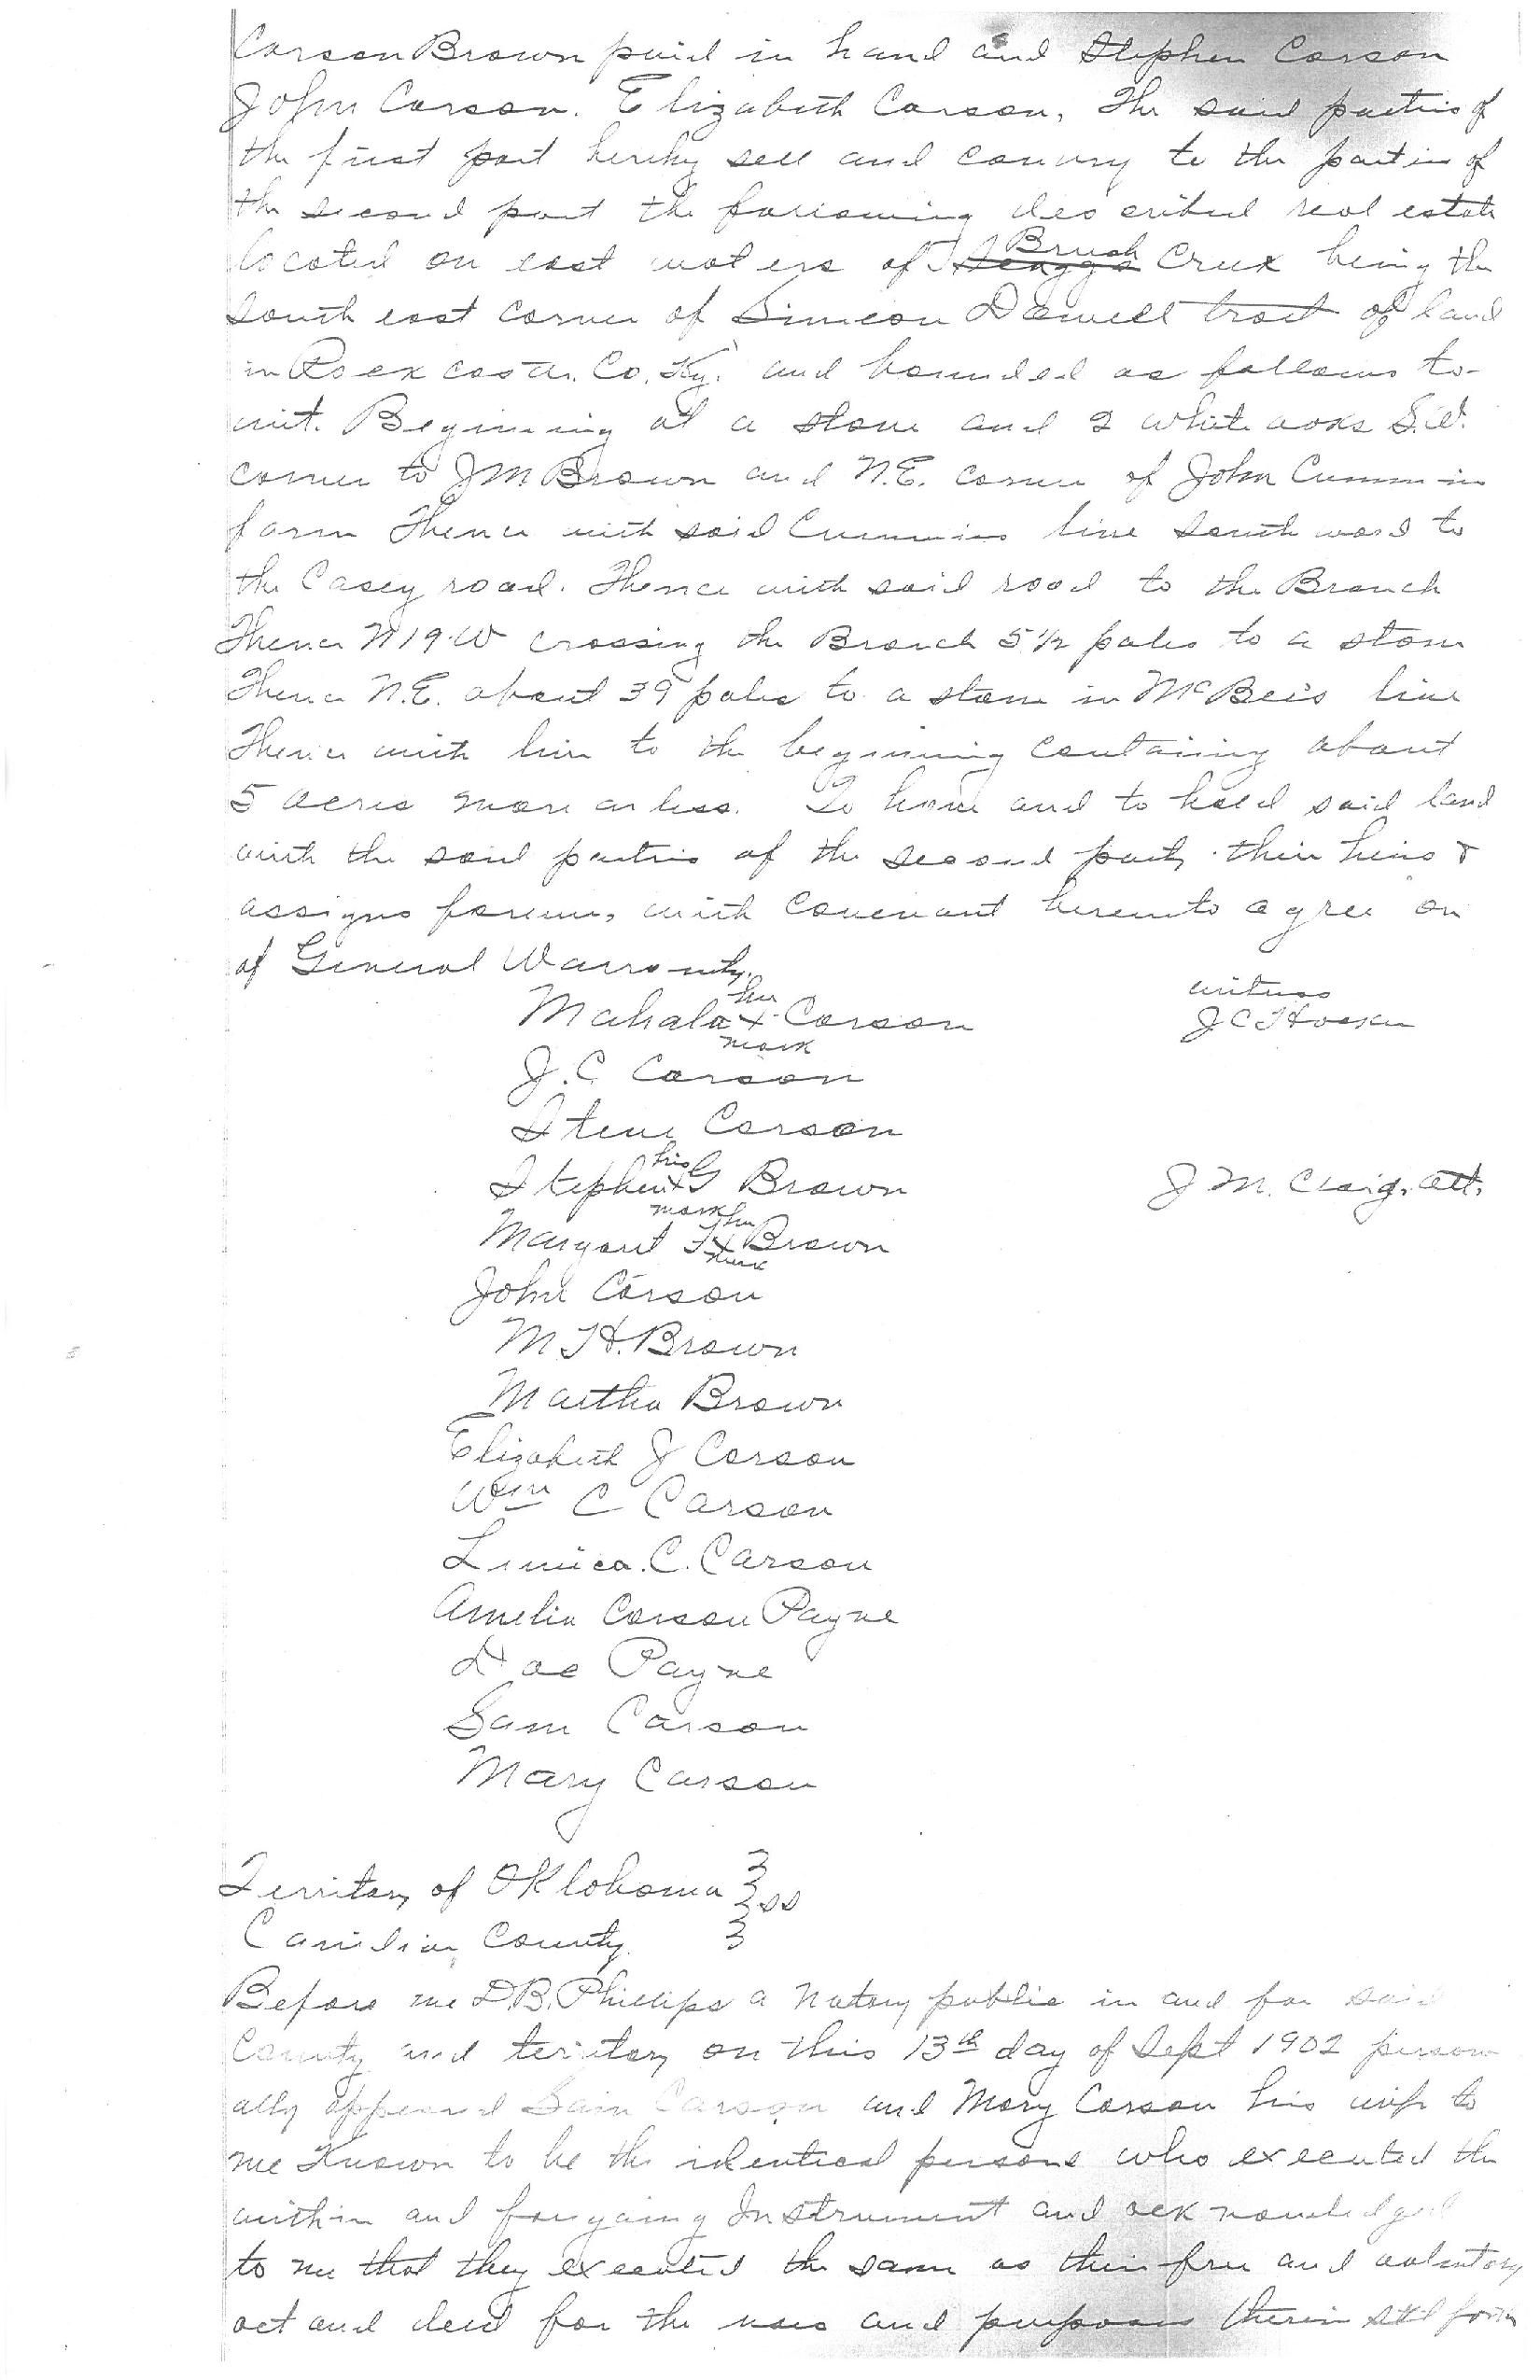 Carson Brown paid in hand and Stephen Carson
John Carson. Elizabeth Carson, The said parties of
the first part hereby sell and convey to the parties of
the second part the following described real estate
located on east waters of Skaggs Brush Creek being the
South east corner of Simeon Dowell tract of land
in Rockcastle. Co. Ky. and bounded as follows to-
wit. Beginning at a stone and 2 white aoks S.W.
corner to J M Brown and N.E. corner of John Cummin
farm Thence with said Cummins line southward to
the Casey road. Thence with said road to the Branch
Thence N 19 W crossing the Branch 5 1/2 poles to a stone
Thence N.E. about 39 poles to a stone in McBee's line
Thence with line to the beginning containing about
5 acres more or less. To have and to hold said land
with the said parties of the second part, their heirs &
assigns forever, with covenant hereinto agree on
of General Warranty.
her
Mahala x Carson
mark
witness
J C Hooker
J. C Carson
Steve Carson
his
Stephen x G Brown
mark
J M. Craig. Att.
her
Margaret F x Brown
mark
John Carson
M. H. Brown
Martha Brown
Elizabeth J Carson
Wm C Carson
C. Carson
Amelia Carson Payne
Doc Payne
Sam Carson
Mary Carson
Territory of Oklahoma } ss
Canidian County }
Before me D.B. Phillips a Notary public in and for said
County and territory on this 13th day of Sept 1902 person
ally appeared Sam Carson and Mary Carson his wife to
me Known to be the identical persons who executed the
within and forgoing Instrument and acknowledged
to me that they executed the same as their free and voluntary
act and deed for the uses and purposes therein set forth